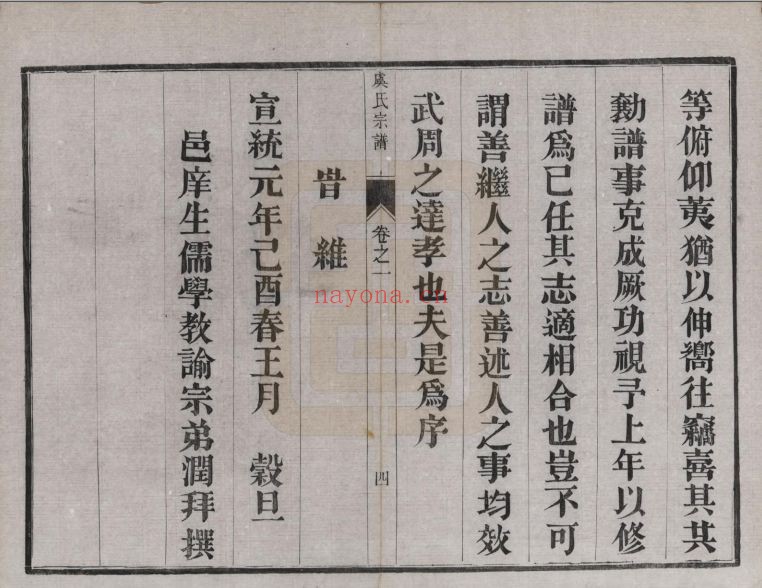 等俯仰荑猶以伸嚮往竊喜其共
勷譜事克成厥功視予上年以修
譜爲已任其志適相合也豈不可
謂善繼人之志善述人之事均效
武周之達孝也夫是爲序
虞氏宗譜 卷之一 四
旹維
宣統元年己酉春王月 穀旦
邑庠生儒學教諭宗弟潤拜撰
nayona.cn